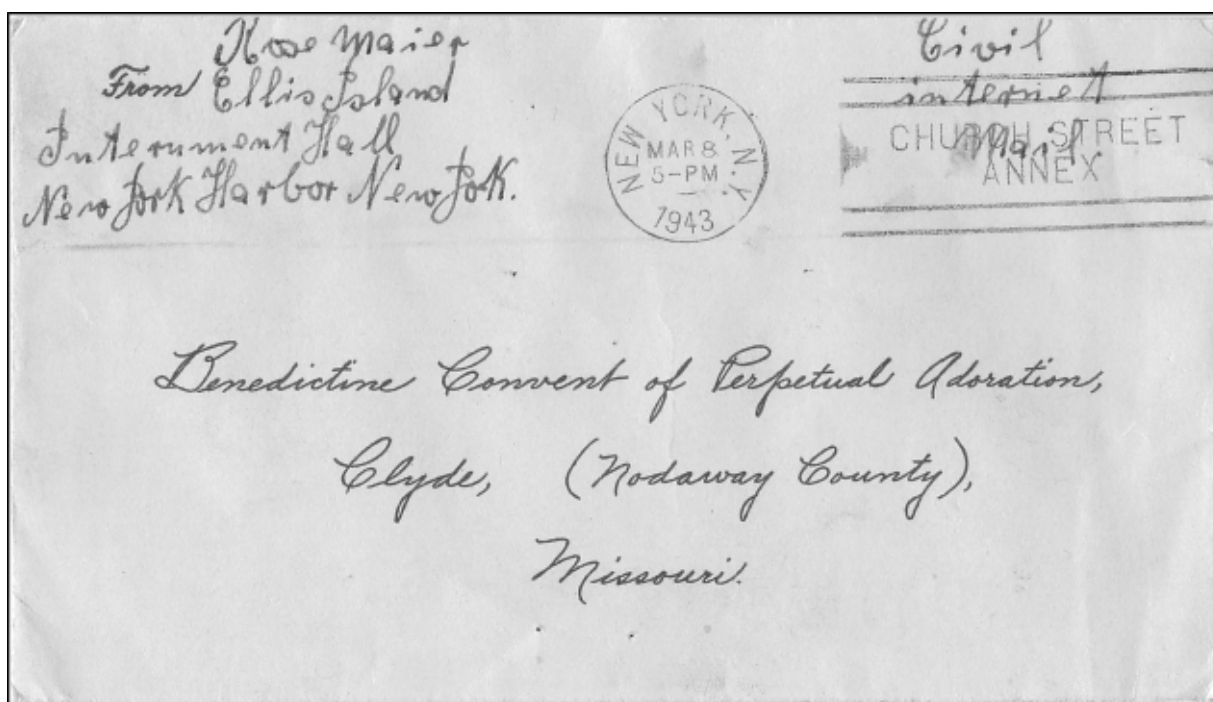 Rose Maier
From Ellis Island
Internment Hall
New York Harbor New York.
NEW YORK, N.Y.
MAR 8
5-PM
1943
Civil
internet
Mail
CHURCH STREET
ANNEX
Benedictine Convent of Perpetual Adoration,
Clyde, (Nodaway County),
Missouri.